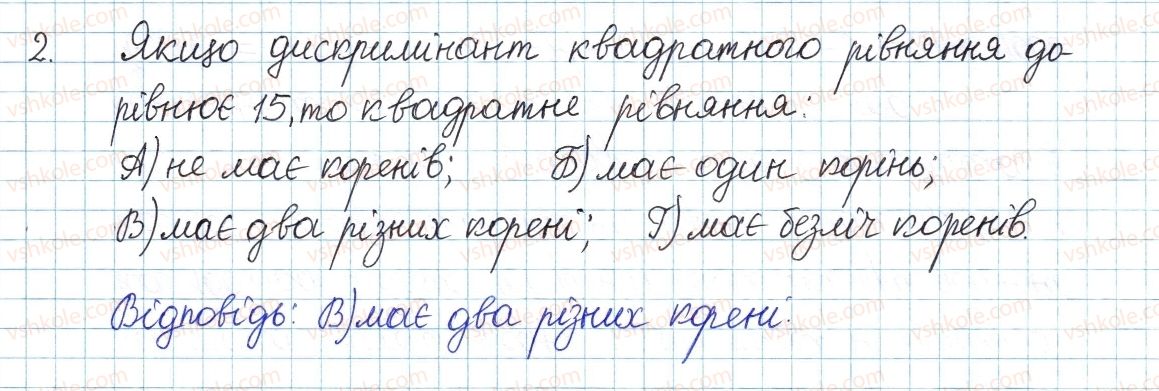 2. Якщо дискримінант квадратного рівняння до-
рівнює 15, то квадратне рівняння:
А) не має коренів; Б) має один корінь;
В) має два різних корені; Г) має безліч коренів.
Відповідь: В) має два різних корені.